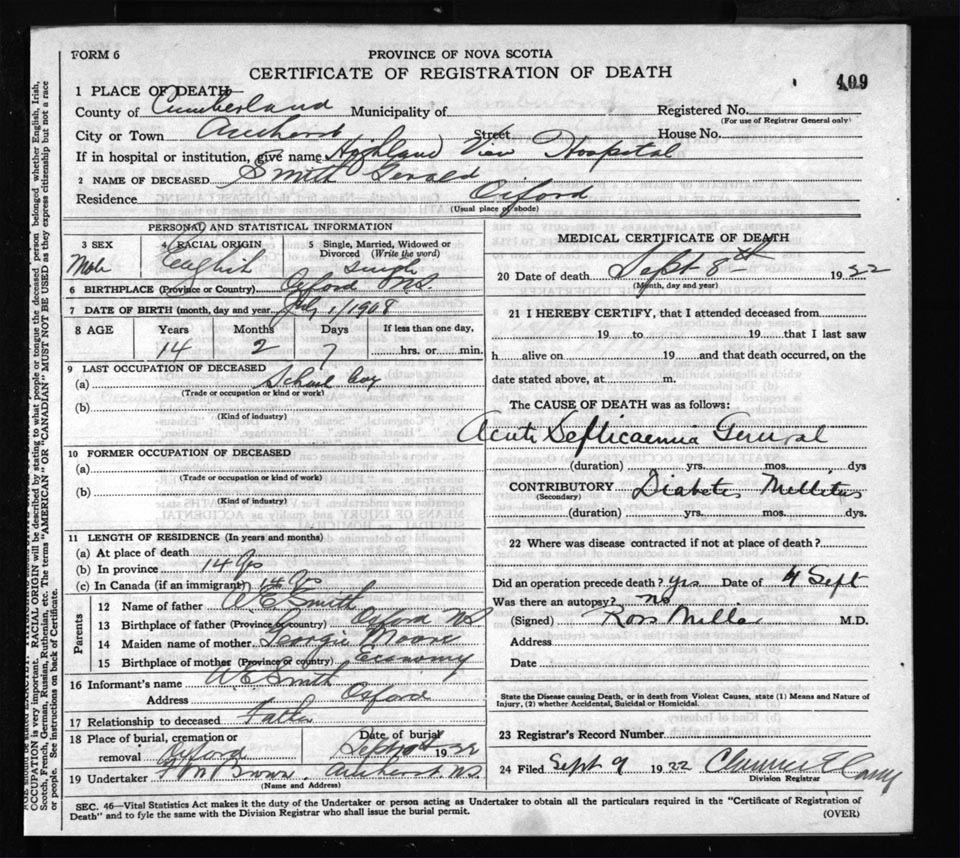 FORM 6
PROVINCE OF NOVA SCOTIA
CERTIFICATE OF REGISTRATION OF DEATH
409
1 PLACE OF DEATH—
County of Cumberland Municipality of Registered No.
(For use of Registrar General only)
City or Town Amherst Street House No.
If in hospital or institution, give name Highland View Hospital
2 NAME OF DECEASED Smith Gerald
Residence Oxford
(Usual place of abode)
PERSONAL AND STATISTICAL INFORMATION
3 SEX 4 RACIAL ORIGIN 5 Single, Married, Widowed or Divorced (Write the word)
Male English Single
6 BIRTHPLACE (Province or Country) Oxford N.S.
7 DATE OF BIRTH (month, day and year) July 1/1908
8 AGE Years Months Days If less than one day,
14 2 7 hrs. or min.
9 LAST OCCUPATION OF DECEASED
(a) School boy
(Trade or occupation or kind of work)
(b)
(Kind of industry)
10 FORMER OCCUPATION OF DECEASED
(a)
(Trade or occupation or kind of work)
(b)
(Kind of industry)
11 LENGTH OF RESIDENCE (In years and months)
(a) At place of death
(b) In province 14 Ys
(c) In Canada (if an immigrant) 14 Ys
Parents
12 Name of father W E Smith
13 Birthplace of father (Province or country) Oxford NS
14 Maiden name of mother Georgie Moore
15 Birthplace of mother (Province or country) Economy
16 Informant's name W E Smith
Address Oxford
17 Relationship to deceased Father
18 Place of burial, cremation or removal Oxford Date of burial Sept 10th 1922
19 Undertaker F M Brown. Amherst N.S.
(Name and Address)
MEDICAL CERTIFICATE OF DEATH
20 Date of death Sept 8th 1922
(Month, day and year)
21 I HEREBY CERTIFY, that I attended deceased from
19 to 19 that I last saw
h alive on 19 and that death occurred, on the
date stated above, at m.
The CAUSE OF DEATH was as follows:
Acute Septicaemia General
(duration) yrs. mos. dys
CONTRIBUTORY Diabetes Mellitus
(Secondary)
(duration) yrs. mos. dys.
22 Where was disease contracted if not at place of death?
Did an operation precede death? yes Date of 4 Sept
Was there an autopsy? no
(Signed) Ross Millar M.D.
Address
Date
State the Disease causing Death, or in death from Violent Causes, state (1) Means and Nature of
Injury, (2) whether Accidental, Suicidal or Homicidal.
23 Registrar's Record Number
24 Filed Sept 9 1922 Clarence E Casey
Division Registrar
SEC. 46—Vital Statistics Act makes it the duty of the Undertaker or person acting as Undertaker to obtain all the particulars required in the "Certificate of Registration of
Death" and to fyle the same with the Division Registrar who shall issue the burial permit.
(OVER)
OCCUPATION is very important. RACIAL ORIGIN will be described by stating to what people or tongue the deceased person belonged whether English, Irish,
Scotch, French, German, Russian, Ruthenian, etc. The terms "AMERICAN" OR "CANADIAN" MUST NOT BE USED as they express citizenship but not a race
or people. See instructions on back of Certificate.